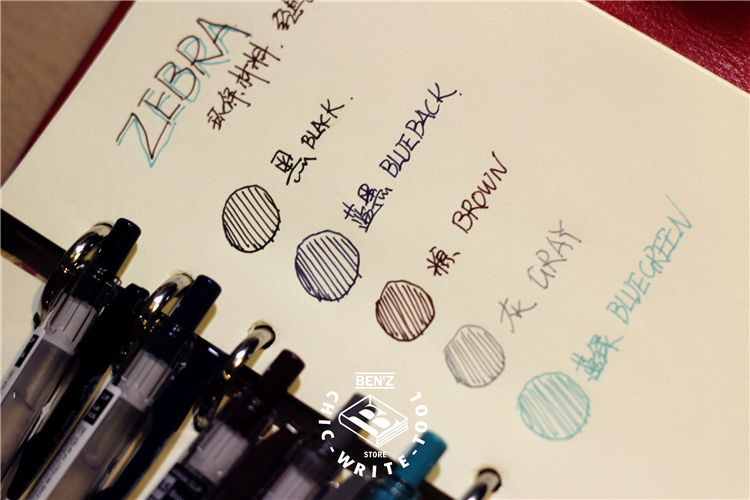 ZEBRA
环保材料.
黑 BLACK.
蓝黑 BLUEBACK.
棕 BROWN
灰 GRAY
蓝绿 BLUEGREEN
BEN'Z
STORE
CHIC-WRITE-TOOL